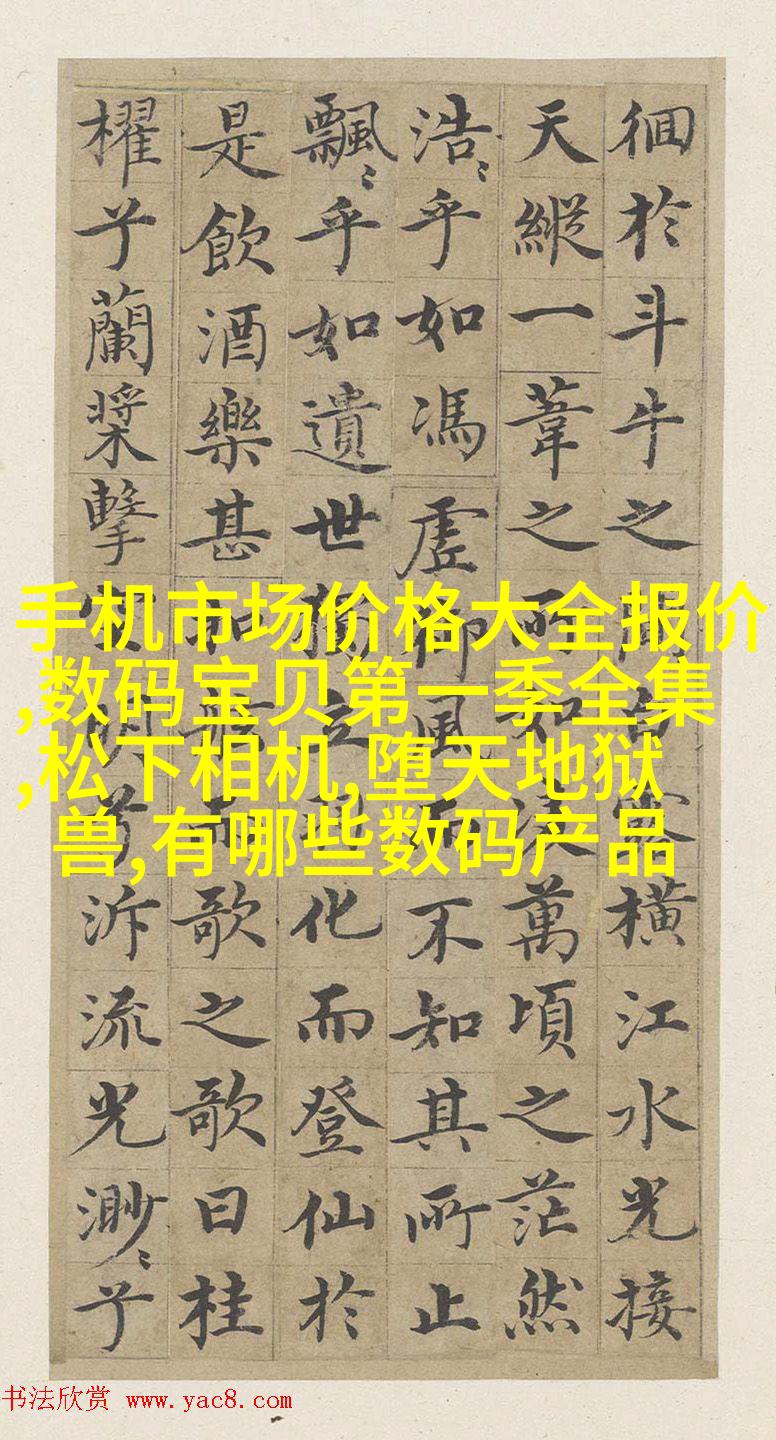 徊於斗牛之間白露橫江水光接
天縱一葦之所如凌萬頃之茫然
浩〻乎如馮虛御風而不知其所止
飄〻乎如遺世獨立羽化而登仙於
是飲酒樂甚扣舷而歌之歌曰桂
櫂兮蘭槳擊空明兮泝流光渺〻兮
手机市场价格大全报价
,数码宝贝第一季全集
,松下相机,堕天地狱
兽,有哪些数码产品
书法欣赏 www.yac8.com